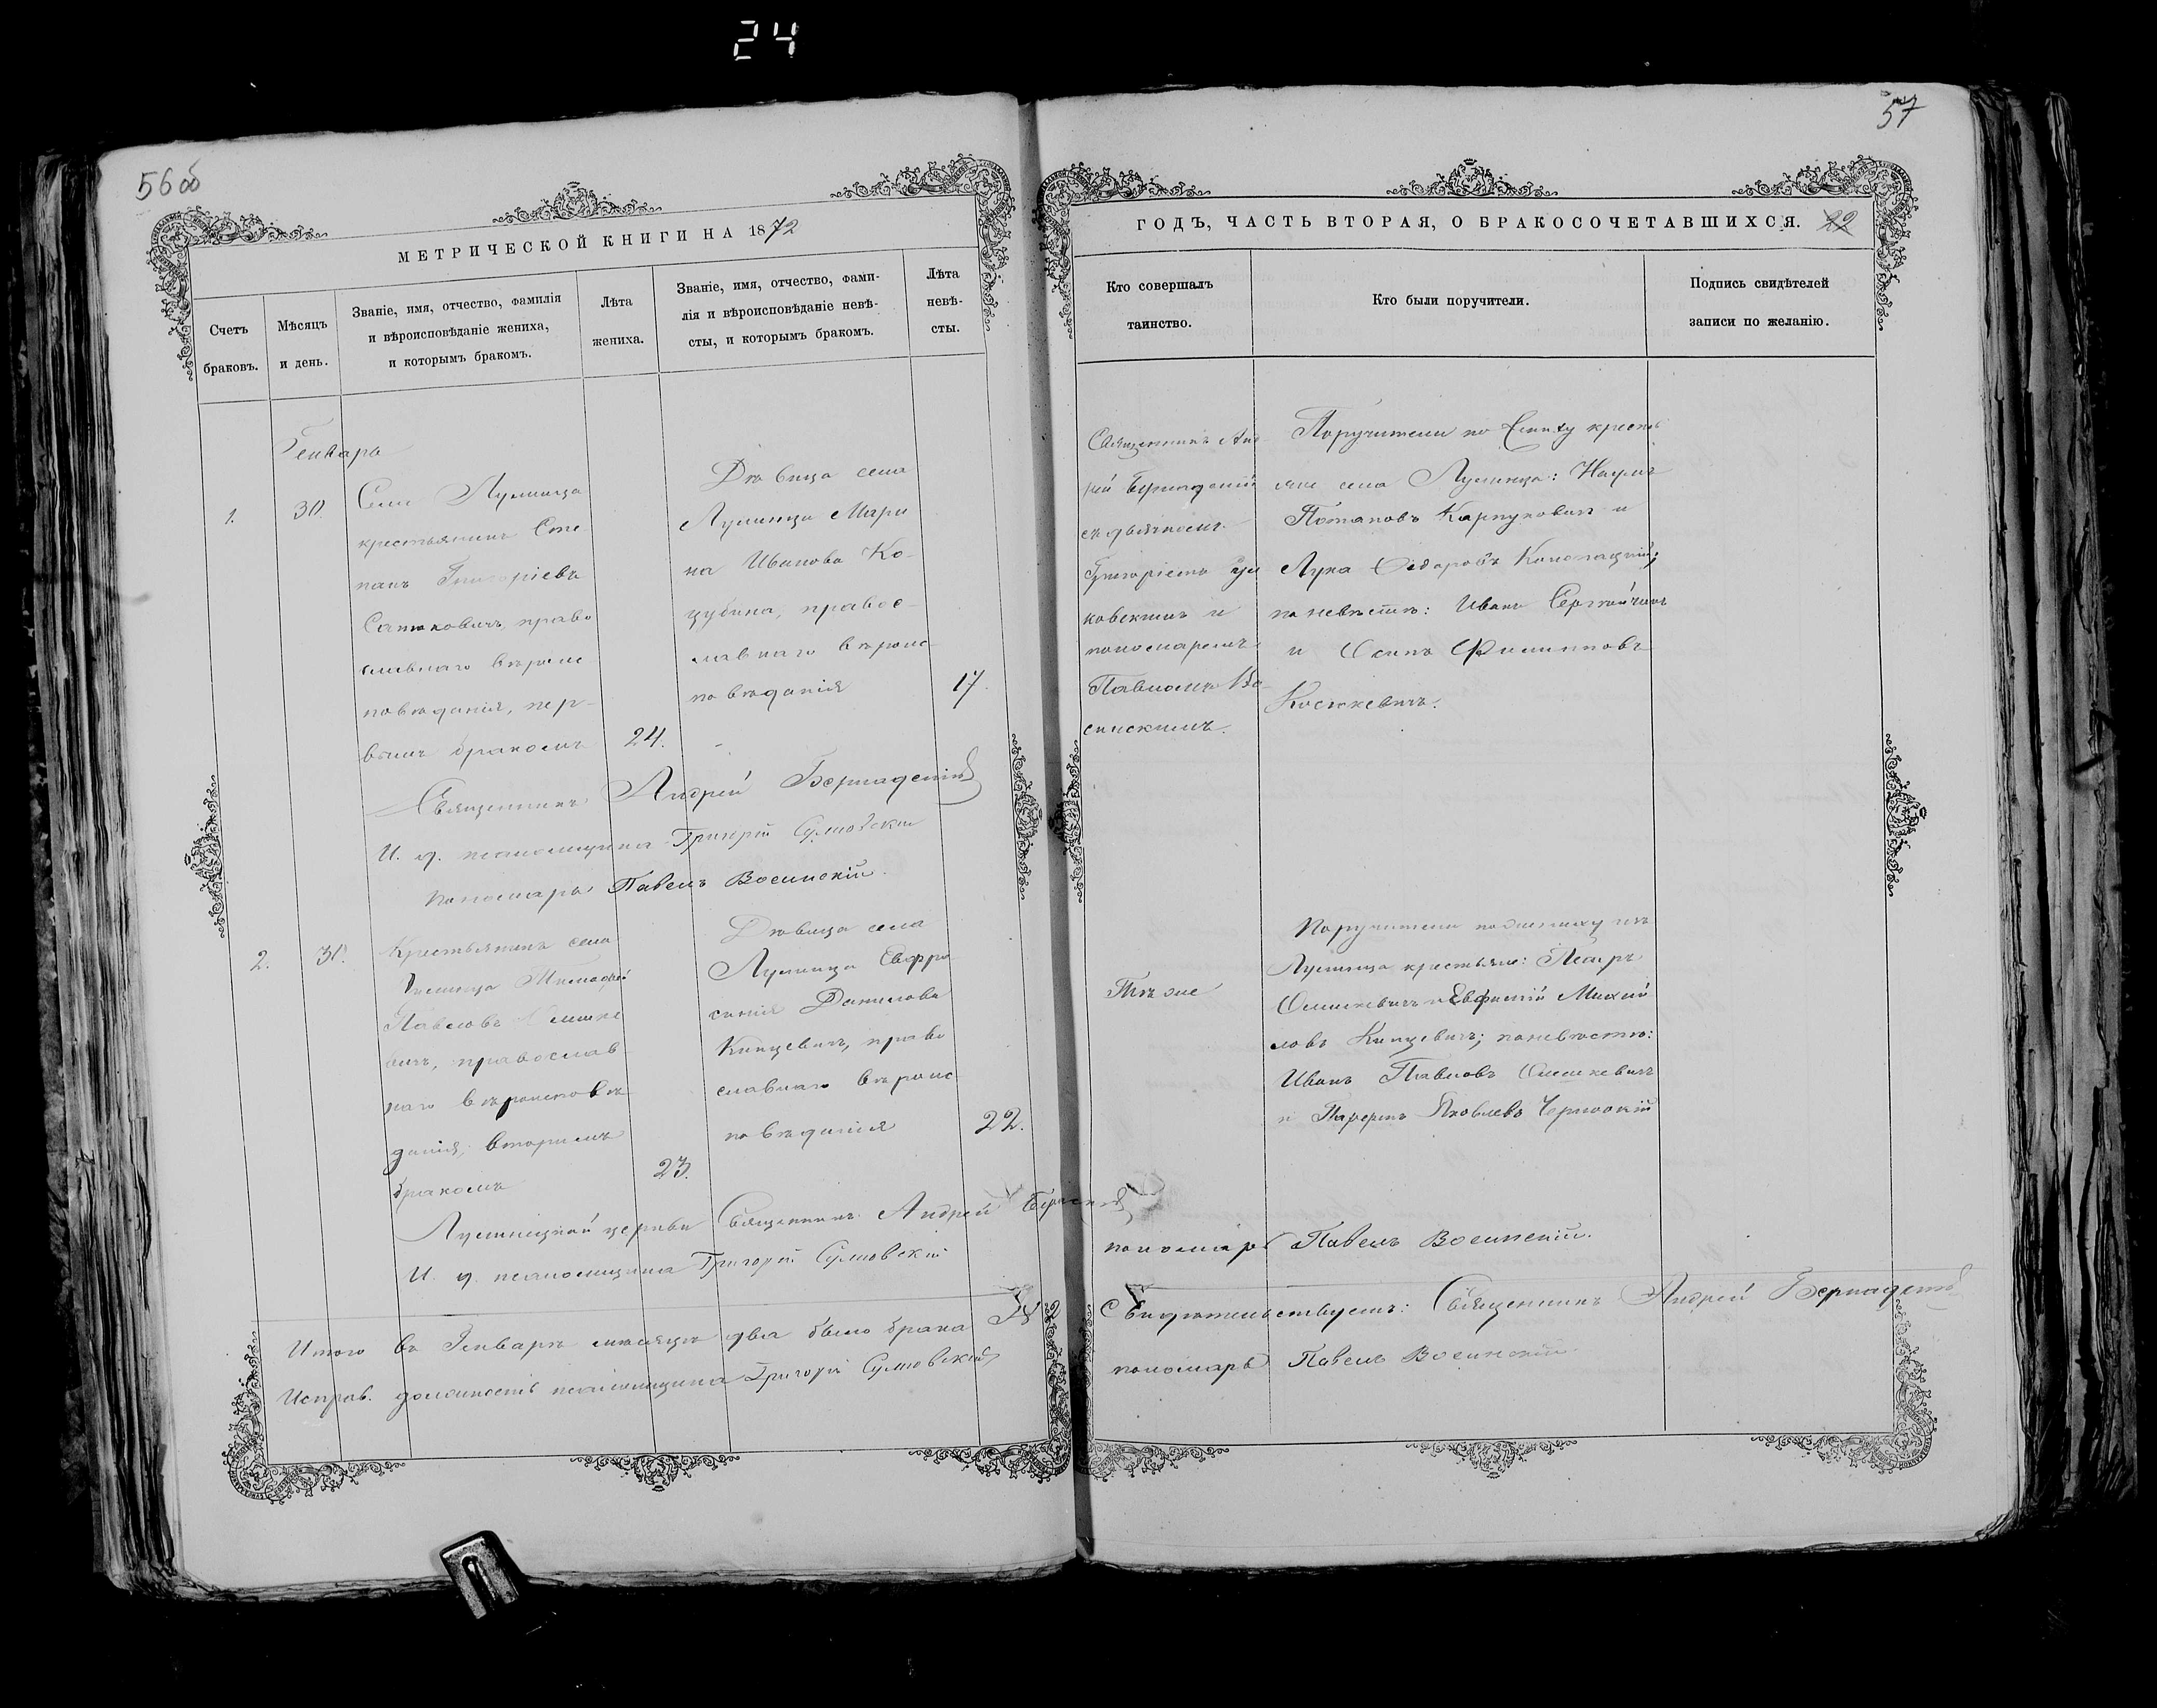 24
56об
МЕТРИЧЕСКОЙ КНИГИ НА 1872
Счетъ браковъ.
Мѣсяцъ и день.
Званіе, имя, отчество, фамилія
и вѣроисповѣданіе жениха,
и которымъ бракомъ.
Лѣта жениха.
Званіе, имя, отчество, фами-
лія и вѣроисповѣданіе невѣ-
сты, и которымъ бракомъ.
Лѣта невѣ-
сты.
Генваря
1.
30.
Села Лунинца
крестьянинъ Сте
панъ Григоріевъ
право
славнаго вѣроис
повѣданія, пер-
вымъ бракомъ
24.
Дѣвица села
Лунинца Мари
на Иванова Ко-
цубина, правос-
лавнаго вѣроис-
повѣданія
17.
Священникъ Андрей
И. д. псаломщика Григорій
Пономарь Павелъ
2.
31.
Крестьянинъ села
Лунинца Тимофей
Павловъ
вичъ, православ-
наго вѣроисповѣ
данія, вторымъ
бракомъ
23.
Дѣвица села
Лунинца Евфро
синія Данилова
Кунцевичъ, право
славнаго вѣроис
повѣданія
22.
Лунинецкой церкви Священникъ Андрей
И. д. псаломщика Григорій
Итого въ Генварѣ мѣсяцѣ два было брака 2
Исправ. должность псаломщика Григорій
57
ГОДЪ, ЧАСТЬ ВТОРАЯ, О БРАКОСОЧЕТАВШИХСЯ. 22
Кто совершалъ
таинство.
Кто были поручители.
Подпись свидѣтелей
записи по желанію.
Священникъ Анд
рей
съ дьячкомъ
Григоріемъ
ковскимъ и
пономаремъ
Павломъ Во-
синскимъ.
Поручители по жениху кресть
яне села Лунинца: Наумъ
Потаповъ Карпуковичъ и
Лука Ѳедоровъ
по невѣстѣ: Иванъ
и Осипъ Филипповъ
Тѣ же
Поручители по жениху изъ
Лунинца крестьяне: Петръ
и Евфимій Михай
ловъ Кунцевичъ; по невѣстѣ:
Иванъ Павловъ
и Яковлевъ
пономарь Павелъ
Свидѣтельствуемъ: Священникъ Андрей
пономарь Павелъ